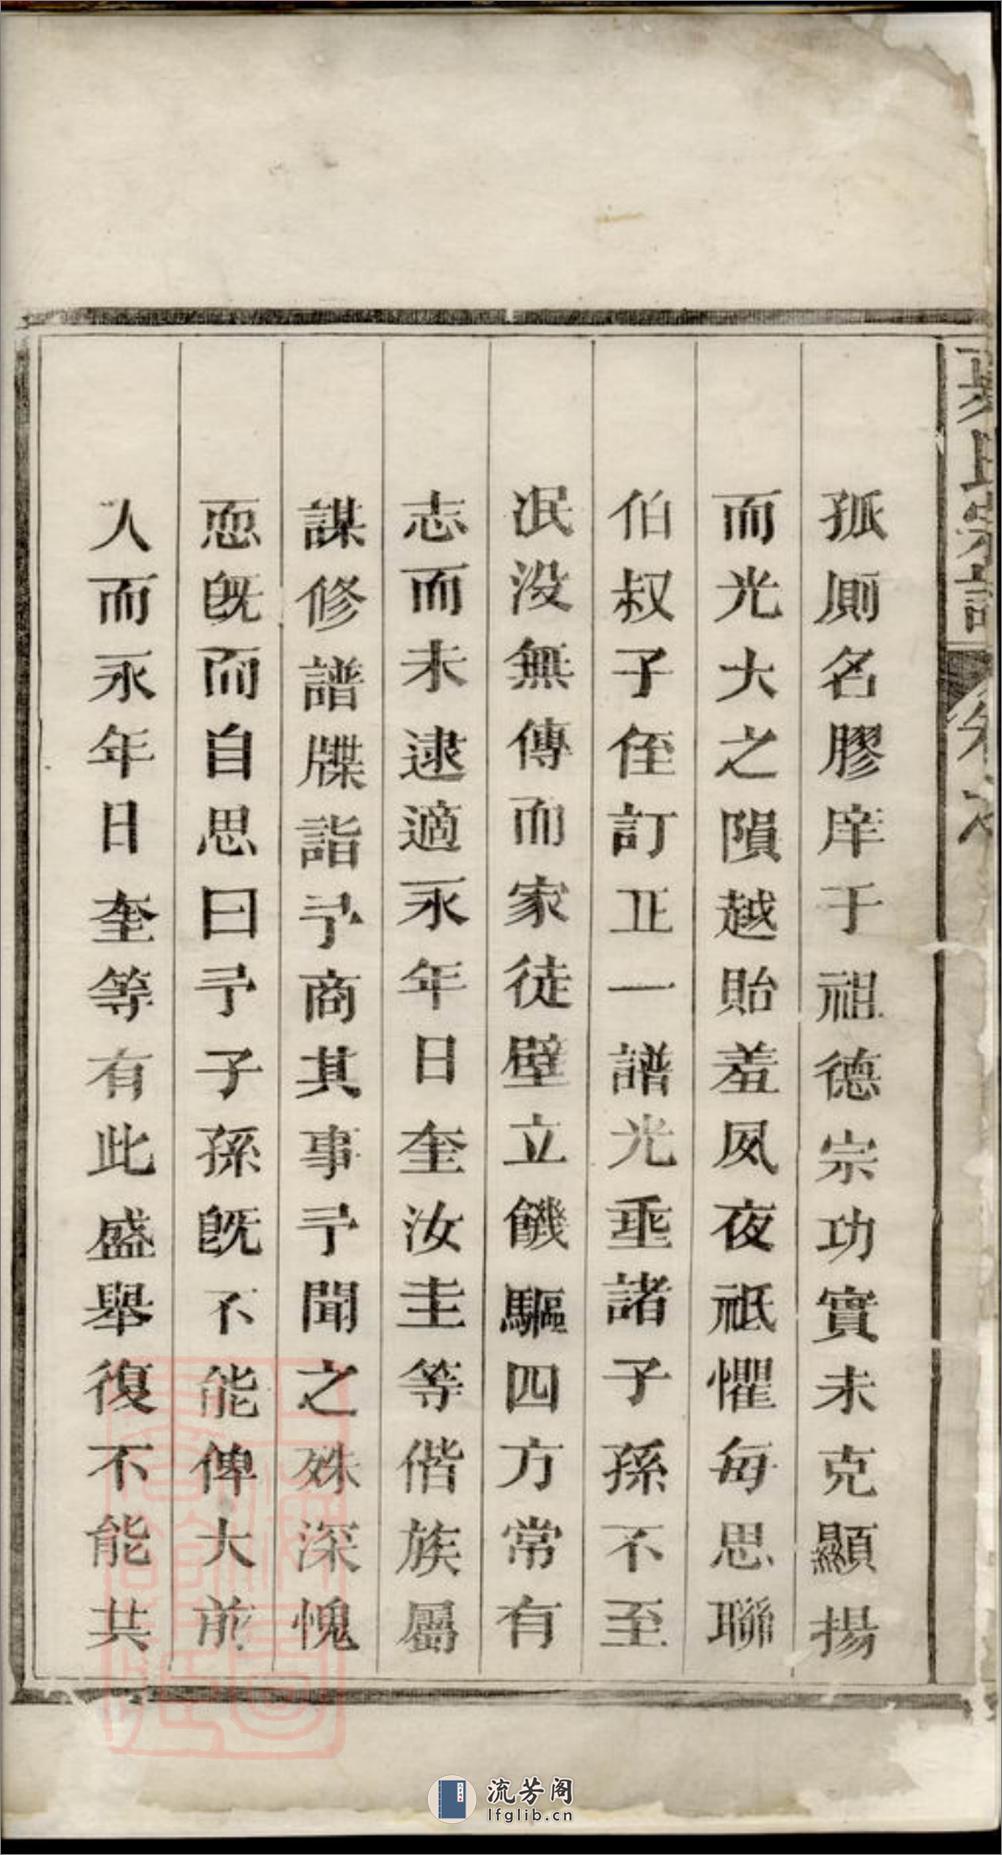 孤厠名膠庠于祖德宗功實未克顯揚
而光大之隕越貽羞夙夜祗懼每思聯
伯叔子侄訂正一譜光垂諸子孫不至
泯没無傳而家徒壁立饑驅四方常有
志而未逮適永年日奎汝圭等偕族屬
謀修譜牒詣予商其事予聞之殊深愧
恧既而自思曰予子孫既不能俾大前
人而永年日奎等有此盛舉復不能共
氏宗譜
流芳阁
lfglib.cn